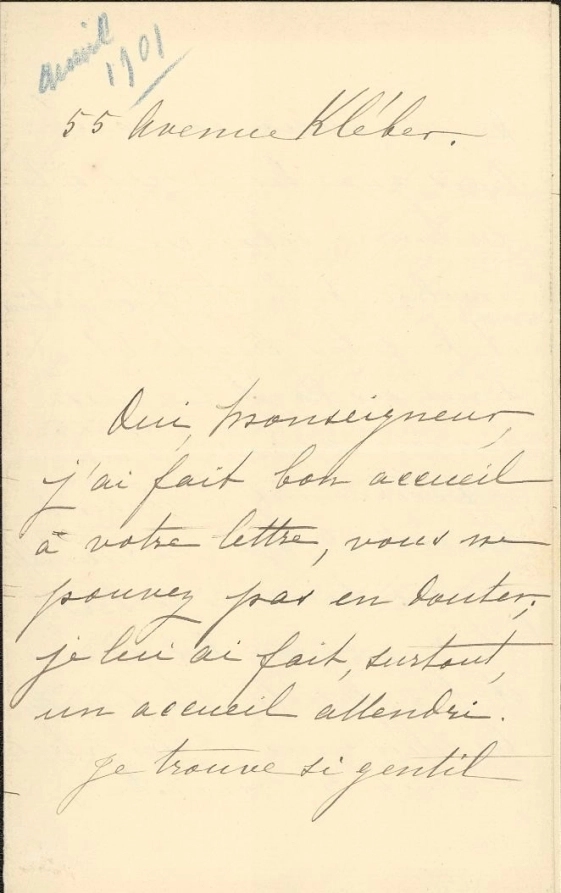 avril
1901
55 Avenue Kléber.
Oui, Monseigneur,
j'ai fait bon accueil
à votre lettre, vous ne
pouvez pas en douter;
je lui ai fait, surtout,
un accueil attendri.
Je trouve si gentil